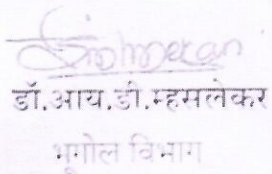 डॉ.आय.डी.म्हसलेकर
भूगोल विभाग